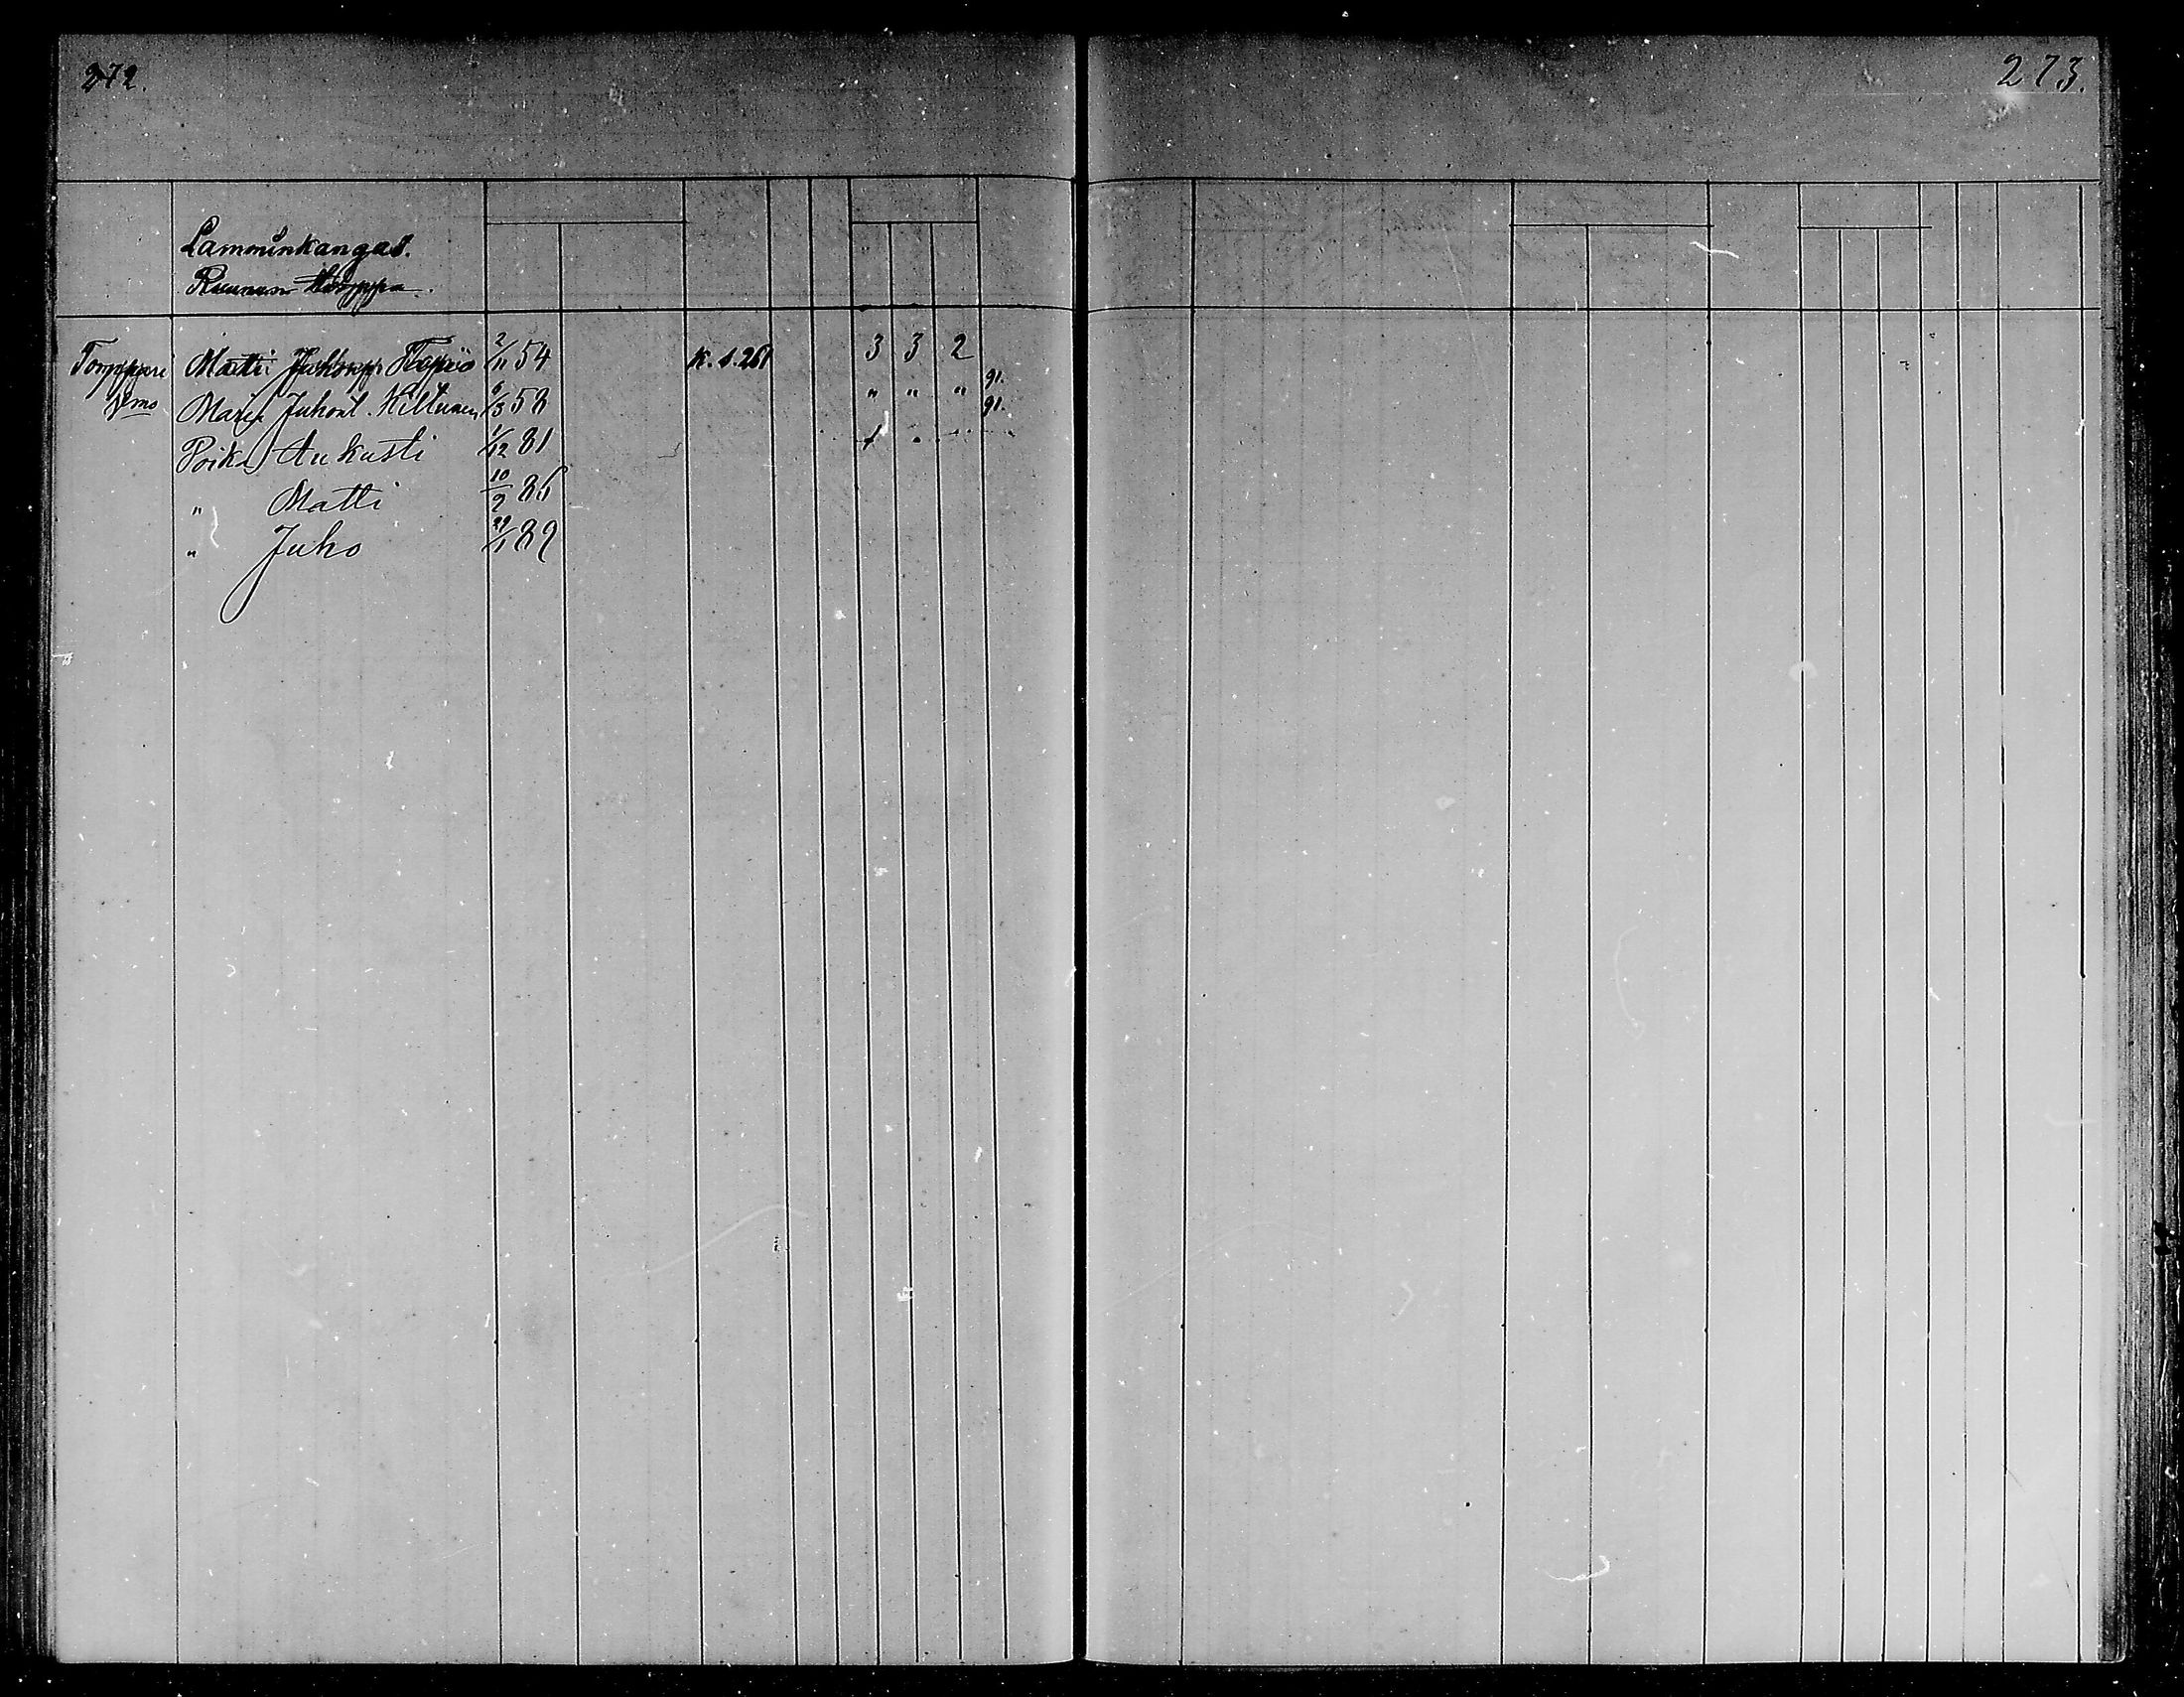 272.
273.
Lamminkangas.
Ruunun Torppa.
Torppari Matti Juhonp. Tapio 2/11 54 K. s. 261 3 3 2
Vmo Maria Juhont. Kiltunen 6/3 58 " " " 91. 91.
Poika Aukusti 1/12 81
" Matti 10/2 86
" Juho 29/1 89